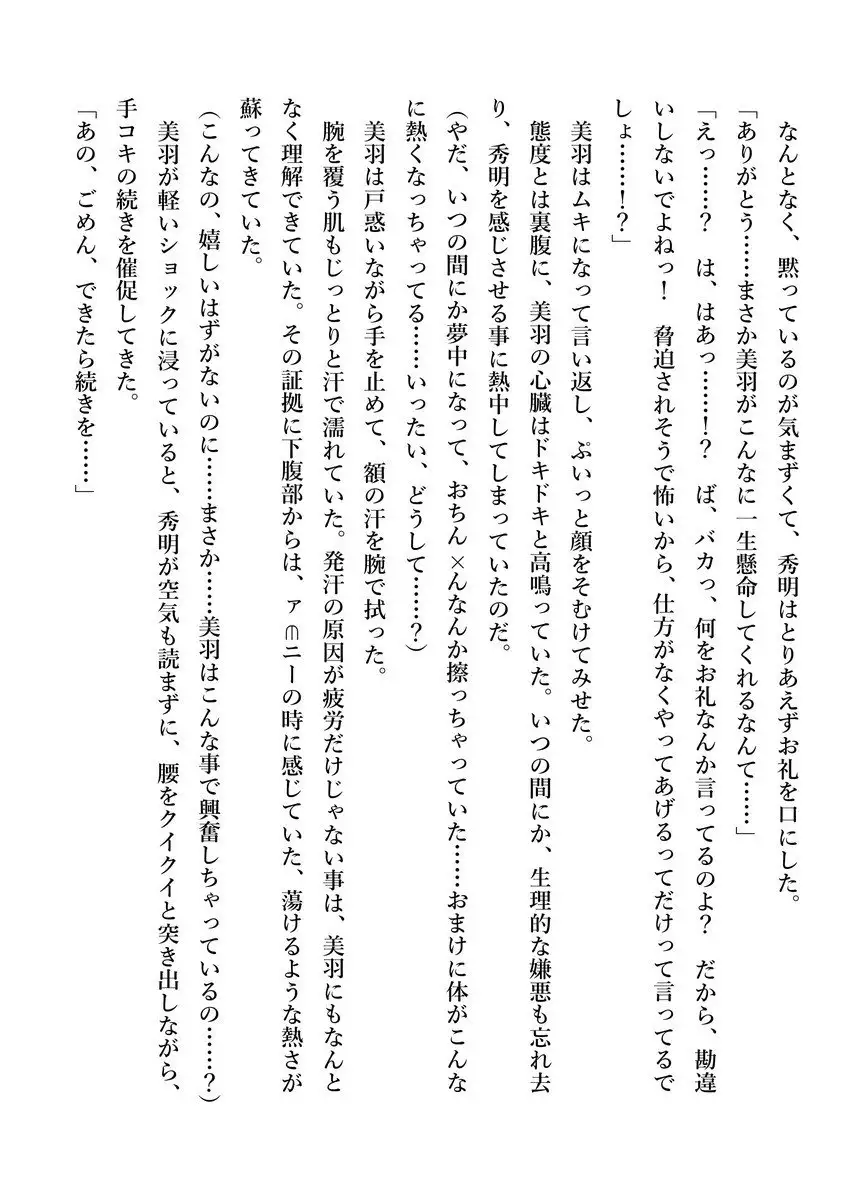 なんとなく、黙っているのが気まずくて、秀明はとりあえずお礼を口にした。
「ありがとう……まさか美羽がこんなに一生懸命してくれるなんて……」
「えっ……？　は、はあっ……！？　ば、バカっ、何をお礼なんか言ってるのよ？　だから、勘違
いしないでよねっ！　脅迫されそうで怖いから、仕方がなくやってあげるってだけって言ってるで
しょ……！？」
　美羽はムキになって言い返し、ぷいっと顔をそむけてみせた。
　態度とは裏腹に、美羽の心臓はドキドキと高鳴っていた。いつの間にか、生理的な嫌悪も忘れ去
り、秀明を感じさせる事に熱中してしまっていたのだ。
（やだ、いつの間にか夢中になって、おちん×んなんか擦っちゃっていた……おまけに体がこんな
に熱くなっちゃってる……いったい、どうして……？）
　美羽は戸惑いながら手を止めて、額の汗を腕で拭った。
　腕を覆う肌もじっとりと汗で濡れていた。発汗の原因が疲労だけじゃない事は、美羽にもなんと
なく理解できていた。その証拠に下腹部からは、ァ⋒ニーの時に感じていた、蕩けるような熱さが
蘇ってきていた。
（こんなの、嬉しいはずがないのに……まさか……美羽はこんな事で興奮しちゃっているの……？）
　美羽が軽いショックに浸っていると、秀明が空気も読まずに、腰をクイクイと突き出しながら、
手コキの続きを催促してきた。
「あの、ごめん、できたら続きを……」